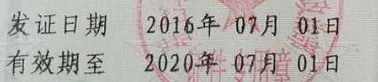 发证日期 2016年 07月 01日
有效期至 2020年 07月 01日